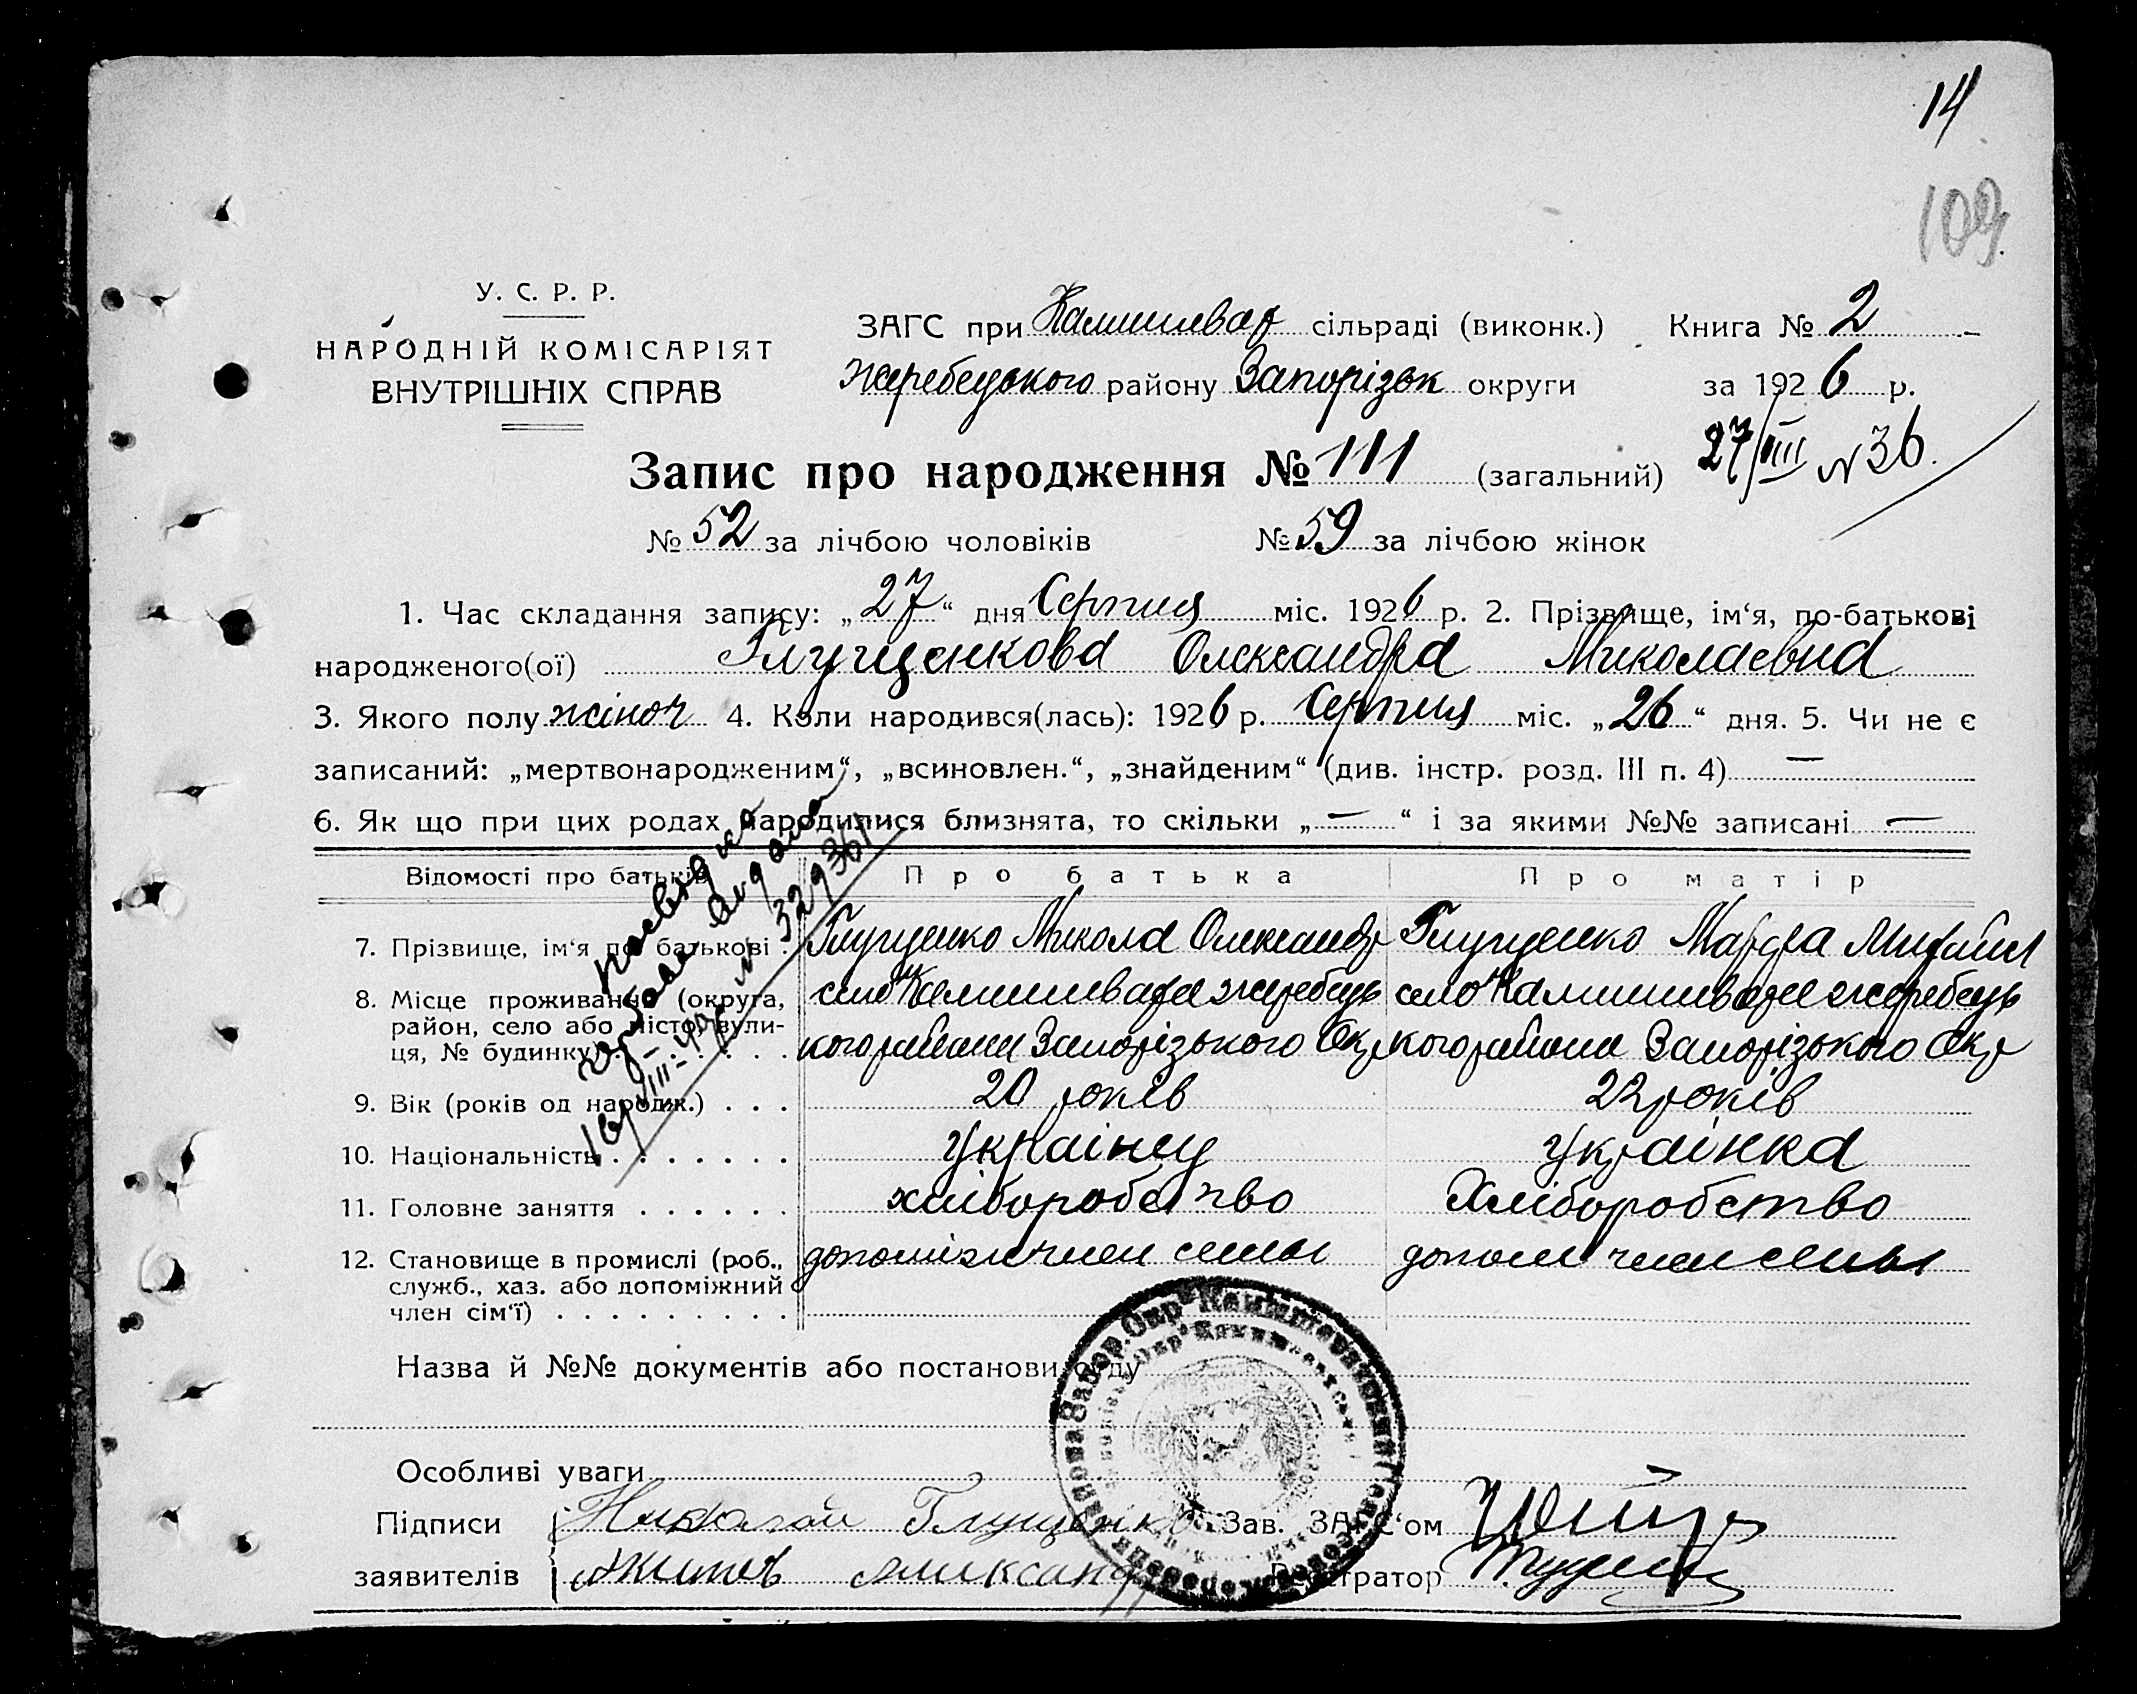 14
109.
У. С. Р. Р.
НАРОДНІЙ КОМІСАРІЯТ
ВНУТРІШНІХ СПРАВ
ЗАГС при Камишевах сільраді (виконк.) Книга № 2
Жеребецького району Запорізьк округи за 1926 р.
27/VIII N 36.
Запис про народження № 111 (загальний)
№ 52 за лічбою чоловіків № 59 за лічбою жінок
1. Час складання запису: „27“ дня Серпня міс. 1926 р. 2. Прізвище, ім‘я, по-батькові
народженого(ої) Глущенкова Олександра Миколаєвна
3. Якого полу жіноч 4. Коли народився(лась): 1926 р. Серпня міс. „26“ дня. 5. Чи не є
записаний: „мертвонародженим“, „всиновлен.“, „знайденим“ (див. інстр. розд. III п. 4) —
6. Як що при цих родах народилися близнята, то скільки „—“ і за якими №№ записані —
Відомості про батьків Про батька Про матір
7. Прізвище, ім‘я по батькові . Глущенко Микола Олександр Глущенко Марфа Михайл
8. Місце проживання (округа, село Камишеваха Жеребець село Камишеваха Жеребець
район, село або місто, вули-
ця, № будинку) кого района Запорізького Окр кого района Запорізького Окр
9. Вік (років од народж.) . . . 20 років 22 років
10. Національність . . . . . . . українец українка
11. Головне заняття . . . . . . хліборобство Хліборобство
12. Становище в промислі (роб., допоміж член семьи допом член семьи
служб., хаз. або допоміжний
член сім‘ї) . . . . . . . . .
N 329361
Назва й №№ документів або постанови суду
Особливі уваги
Підписи Николай Глущенко Зав. ЗАГС‘ом
заявителів Александр Регістратор